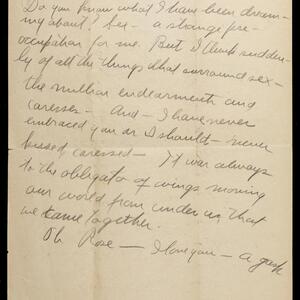 Do you know what I have been dream-
ing about? Sex - a strange pre-
occupation for me. But I think sudden-
ly of all the things that surround sex -
the million endearments and
caresses - And - I have never
embraced you as I should - never
kissed caressed - It was always
to the obligato of wings moving
our world from under us, that
we came together.
Oh Rose - I love you - a